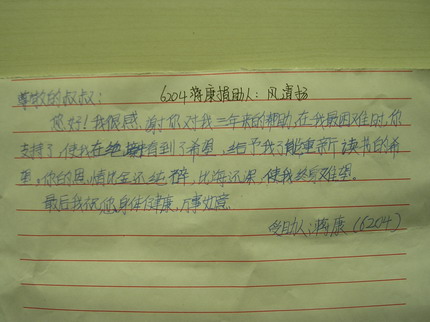 尊敬的叔叔： 6204 蒋康捐助人：风清扬
您好！我很感谢您对我三年来的帮助，在我最困难时，您
支持了，使我在绝望中看到了希望，给予我了能重新读书的希
望。你的恩情比金还纯，比海还深，使我终身难忘。
最后我祝您身体健康，万事如意
受助人：蒋康（6204）